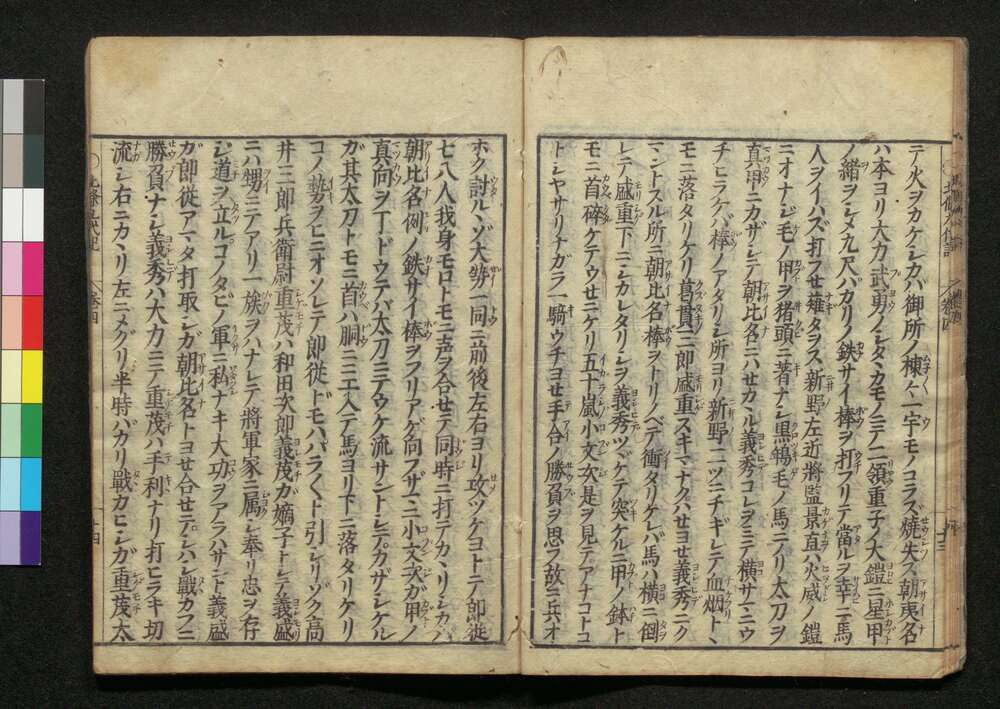 テ火ヲカケシカバ御所ノ棟々一宇モノコラズ焼失ス朝夷名
ハ本ヨリ大力武勇ノシタヽカモノニテ二領重子ノ大鎧ニ星甲
ノ緒ヲシメ九尺バカリノ鉄サイ棒ヲ打フリテ當ルヲ幸ニ馬
人ヲイハズ打フセ薙タヲス新野左近將監景直ハ火威ノ鎧
ニオナジ毛ノ甲ヲ猪頭ニ著ナシ黒鴾毛ノ馬ニノリ太刀ヲ
真甲ニカザシテ朝比名ニハセカヽル義秀コレヲミテ横サマニウ
チヒラケバ棒ノアタリシ所ヨリ新野二ツニチギレテ血烟トヽ
モニ落タリケリ葛貫三郎盛重スキマナクハセヨせ義秀ニク
マントスル所ニ朝比名棒ヲトリノベテ衝タリケレバ馬ハ横ニ倒
レテ盛重下ニシカレタリシヲ義秀ツヾケテ突ケルニ甲ノ鉢ト
モニ首碎ケテウせニケリ五十嵐小文次是ヲ見テアナコトコ
トシヤサリナガラ一騎ウチヨせ手合ノ勝負ヲ思フ故ニ兵オ
ホク討ルヽゾ大勢一同ニ前後左右ヨリ攻ツケヨトテ郎從
七八人我身モロトモニ声ヲ合せテ同時ニ打テカヽリシカバ
朝比名例ノ鉄サイ棒ヲフリアゲ向フザマニ小文次ガ甲ノ
真向ヲ丁ドウテバ太刀ニテウケ流サントシテカザシケル
ガ其太刀トモニ首ハ胴ニミエ入テ馬ヨリ下ニ落タリケリ
コノ勢ヲヒニオソレテ郎從ドモハバラくト引シリゾク高
井三郎兵衛尉重茂ハ和田次郎義茂ガ嫡子トシテ義盛
ニハ甥ニテアリ一族ヲハナレテ將軍家ニ属シ奉リ忠ヲ存
シ道ヲ立ルコノタビノ軍ニ私ナキ大功ヲアラハサント義盛
ガ郎従アマタ打取シガ朝比名トヨせ合せテシバシ戰カフニ
勝負ナシ義秀ハ大力ニテ重茂ハ手利ナリ打ヒラキ切
流シ右ニカヽリ左ニメグリ半時バカリ戰カヒシガ重茂太